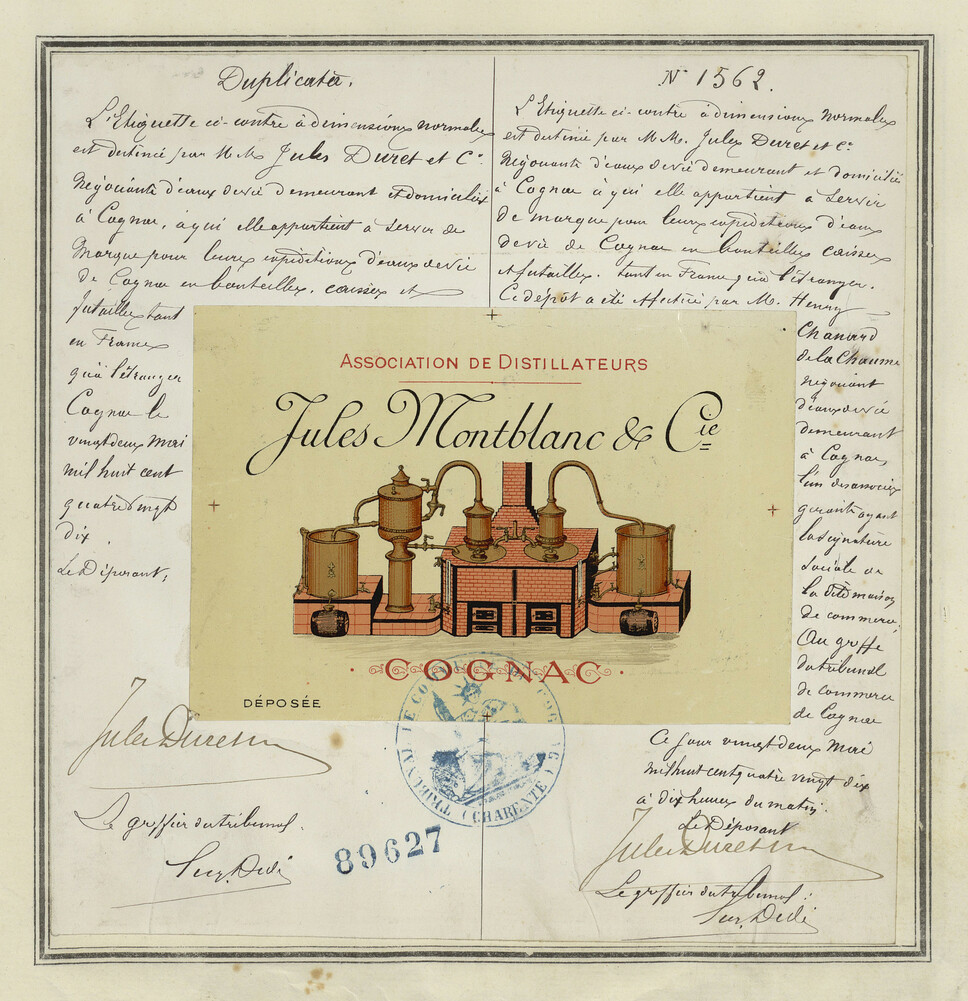 Duplicata.
L'Etiquette ci-contre à dimensions normales
est destiné par M.M. Jules Duret et Cie
Négociants d'eaux de vie demeurant et domiciliés
à Cognac, à qui elle appartient à servir de
Marque pour leurs expéditions d'eaux de vie
de Cognac en bouteilles, caisses et
futailles tant
en France
qu'à l'étranger
Cognac le
vingt deux Mai
mil huit cent
quatre vingt
dix.
Le Déposant,
Jules Duret
Le greffier du tribunal.
No 1562.
L'Etiquette ci-contre à dimensions normales
est destiné par M.M. Jules Duret et Cie
Négociants d'eaux de vie demeurant et domiciliés
à Cognac à qui elle appartient à servir
de marque pour leurs expéditions d'eaux
de vie de Cognac en bouteilles caisses
et futailles. tant en France qu'à l'étranger.
Ce dépôt a été effectué par M. Henry
Chanard
de la Chaume
négociant
d'eaux de vie
demeurant
à Cognac,
l'un des associés
gérants ayant
la signature
sociale de
la dite maison
de commerce,
Au greffe
du tribunal
de commerce
de Cognac
Ce jour vingt deux Mai
mil huit cent quatre vingt dix
à dix heures du matin.
Le Déposant
Jules Duret
Le greffier du tribunal:
ASSOCIATION DE DISTILLATEURS
Jules Montblanc & Cie
COGNAC
DÉPOSÉE
TRIBUNAL DE COMMERCE DE COGNAC (CHARENTE)
89627